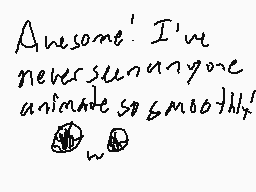 Awesome! I've
never seen anyone
animate so smoothly!